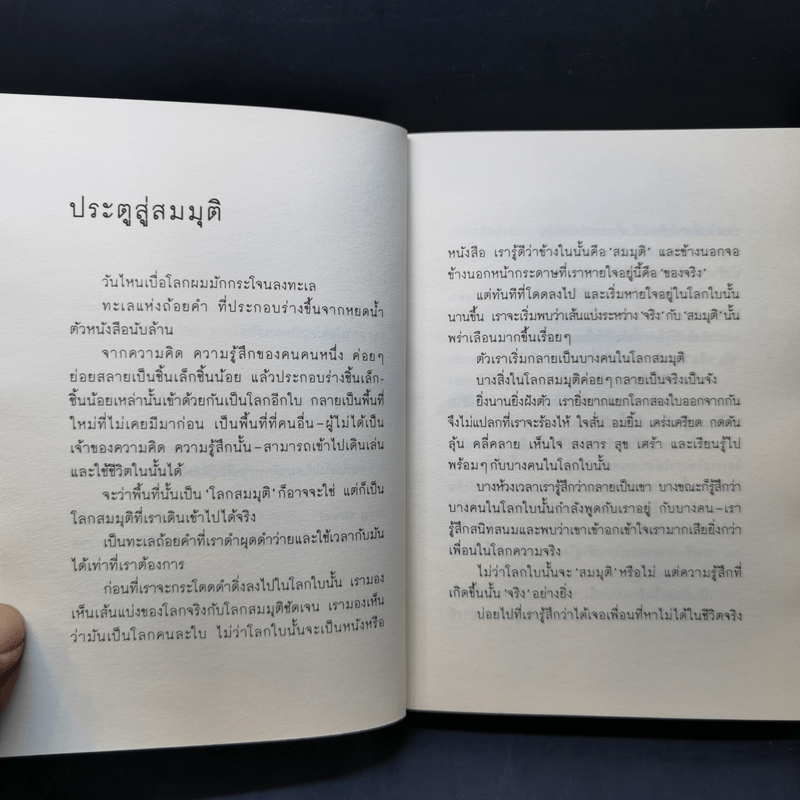 ประตูสู่สมมุติ
วันไหนเบื่อโลกผมมักกระโจนลงทะเล
ทะเลแห่งถ้อยคำ ที่ประกอบร่างขึ้นจากหยดน้ำ
ตัวหนังสือนับล้าน
จากความคิด ความรู้สึกของคนคนหนึ่ง ค่อยๆ
ย่อยสลายเป็นชิ้นเล็กชิ้นน้อย แล้วประกอบร่างชิ้นเล็ก-
ชิ้นน้อยเหล่านั้นเข้าด้วยกันเป็นโลกอีกใบ กลายเป็นพื้นที่
ใหม่ที่ไม่เคยมีมาก่อน เป็นพื้นที่ที่คนอื่น–ผู้ไม่ได้เป็น
เจ้าของความคิด ความรู้สึกนั้น–สามารถเข้าไปเดินเล่น
และใช้ชีวิตในนั้นได้
จะว่าพื้นที่นั้นเป็น 'โลกสมมุติ' ก็อาจจะใช่ แต่ก็เป็น
โลกสมมุติที่เราเดินเข้าไปได้จริง
เป็นทะเลถ้อยคำที่เราดำผุดดำว่ายและใช้เวลากับมัน
ได้เท่าที่เราต้องการ
ก่อนที่เราจะกระโดดดำดิ่งลงไปในโลกใบนั้น เรามอง
เห็นเส้นแบ่งของโลกจริงกับโลกสมมุติชัดเจน เรามองเห็น
ว่ามันเป็นโลกคนละใบ ไม่ว่าโลกใบนั้นจะเป็นหนังหรือ
หนังสือ เรารู้ดีว่าข้างในนั้นคือ 'สมมุติ' และข้างนอกจอ
ข้างนอกหน้ากระดาษที่เราหายใจอยู่นี้คือ 'ของจริง'
แต่ทันทีที่โดดลงไป และเริ่มหายใจอยู่ในโลกใบนั้น
นานขึ้น เราจะเริ่มพบว่าเส้นแบ่งระหว่าง 'จริง' กับ 'สมมุติ' นั้น
พร่าเลือนมากขึ้นเรื่อยๆ
ตัวเราเริ่มกลายเป็นบางคนในโลกสมมุติ
บางสิ่งในโลกสมมุติค่อยๆ กลายเป็นจริงเป็นจัง
ยิ่งนานยิ่งฝังตัว เรายิ่งยากแยกโลกสองใบออกจากกัน
จึงไม่แปลกที่เราจะร้องไห้ ใจสั่น อมยิ้ม เคร่งเครียด กดดัน
ลุ้น คลี่คลาย เห็นใจ สงสาร สุข เศร้า และเรียนรู้ไป
พร้อมๆ กับบางคนในโลกใบนั้น
บางห้วงเวลาเรารู้สึกว่ากลายเป็นเขา บางขณะก็รู้สึกว่า
บางคนในโลกใบนั้นกำลังพูดกับเราอยู่ กับบางคน–เรา
รู้สึกสนิทสนมและพบว่าเขาเข้าอกเข้าใจเรามากเสียยิ่งกว่า
เพื่อนในโลกความจริง
ไม่ว่าโลกใบนั้นจะ 'สมมุติ' หรือไม่ แต่ความรู้สึกที่
เกิดขึ้นนั้น 'จริง' อย่างยิ่ง
บ่อยไปที่เรารู้สึกว่าได้เจอเพื่อนที่หาไม่ได้ในชีวิตจริง